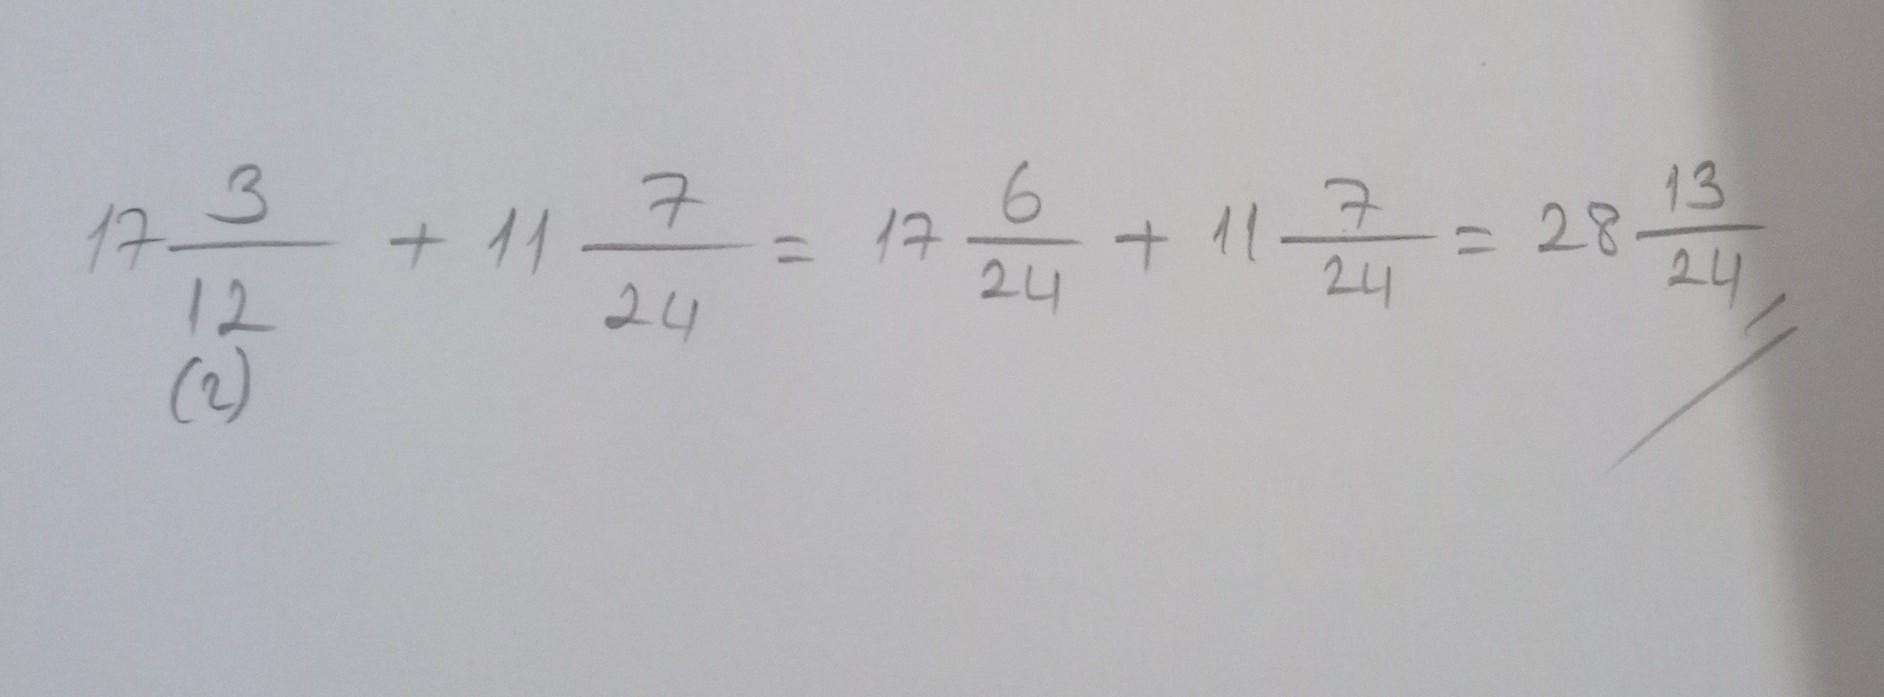 17 3/12 + 11 7/24 = 17 6/24 + 11 7/24 = 28 13/24
(2)